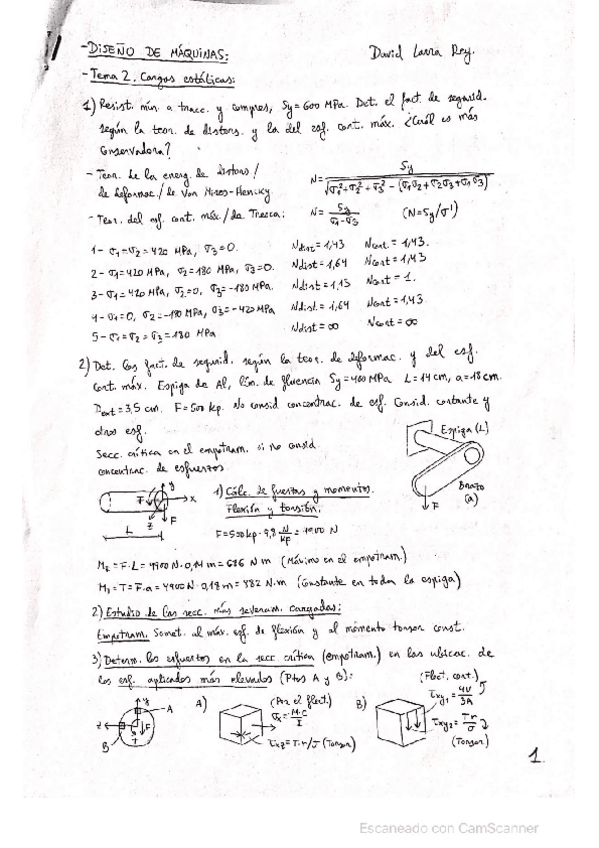 -DISEÑO DE MÁQUINAS:
David Larra Rey.
-Tema 2. Cargas estáticas:
1) Resist. mín. a tracc. y compres, Sy=600 MPa. Det. el fact. de segurid.
según la teor. de distors. y la del esf. cort. máx. ¿Cuál es más
conservadora?
- Teor. de la energ. de distors/
de deformac./de Von Mises-Hencky
N = Sy / √(σ1²+σ2²+σ3² - (σ1σ2+σ2σ3+σ1σ3))
- Teor. del esf. cort. máx./de Tresca:
N = Sy / (σ1-σ3) (N=Sy/σ')
1- σ1=σ2=420 MPa, σ3=0. Ndist=1,43 Ncort=1,43.
2- σ1=420 MPa, σ2=180 MPa, σ3=0. Ndist=1,64 Ncort=1,43
3- σ1=420 MPa, σ2=0, σ3=-180 MPa. Ndist=1,13 Ncort=1.
4- σ1=0, σ2=-180 MPa, σ3=-420 MPa Ndist.=1,64 Ncort=1,43.
5- σ1=σ2=σ3=180 MPa Ndist=∞ Ncort=∞
2) Det. los fact. de segurid. según la teor. de deformac. y del esf.
cort. máx. Espiga de Al, lím. de fluencia Sy=400MPa L=14cm, a=18cm.
Dext=3,5 cm. F=500 kp. No consid concentrac. de esf. Consid. cortante y
otros esf.
Secc. crítica en el empotram. si no consid.
concentrac. de esfuerzos
Espiga (L)
Brazo
(a)
F
y
x
z
F
F
L
1) Cálc. de fuerzas y momentos.
Flexión y torsión:
F=500kp·9,8 N/kp = 4900 N
Mz = F·L = 4900 N·0,14 m = 686 N m (Máximo en el empotram.)
M1 = T = F·a = 4900 N·0,18 m = 882 N.m (Constante en toda la espiga)
2) Estudio de las secc. más severam. cargadas:
Empotram. Somet. al máx. esf. de flexión y al momento torsor const.
3) Determ. los esfuerzos en la secc. crítica (empotram.) en las ubicac. de
los esf. aplicados más elevados (Ptos A y B):
y
A
z
F
T
B
A)
(Por el flect.)
σx = M·C/I
τxz = T·r/J (Torsor)
B)
(Flect. cort.)
τxy1 = 4V/3A
τxy2 = Tr/J
(Torsor)
1.
Escaneado con CamScanner